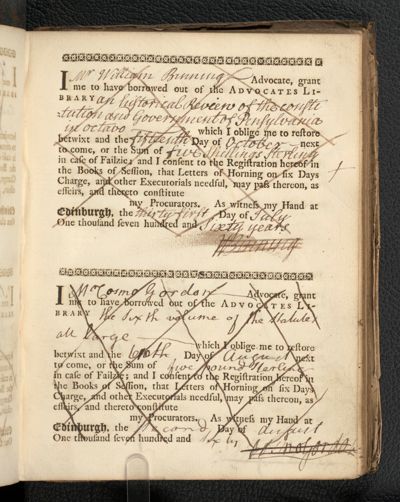 I Mr William Binning Advocate, grant
me to have borrowed out of the ADVOCATES LI-
BRARY an historical Review of the consti
tution and Government of Pensylvania
in octavo which I oblige me to restore
betwixt and the fifteenth Day of October next
to come, or the Sum of five Shillings Sterling
in case of Failzie; and I consent to the Registration hereof in
the Books of Session, that Letters of Horning on six Days
Charge, and other Executorials needful, may pass thereon, as
effeirs, and thereto constitute
my Procurators. As witness my Hand at
Edinburgh, the thirty first Day of July
One thousand seven hundred and Sixty years
I Mr Cosmo Gordon Advocate, grant
me to have borrowed out of the ADVOCATES LI-
BRARY the Sixth volume of the Statutes
at Large
which I oblige me to restore
betwixt and the Day of August next
to come, or the Sum of pound Sterling
in case of Failzie; and I consent to the Registration hereof in
the Books of Session, that Letters of Horning on six Days
Charge, and other Executorials needful, may pass thereon, as
effeirs, and thereto constitute
my Procurators. As witness my Hand at
Edinburgh, the Second Day of August
One thousand seven hundred and Sixty